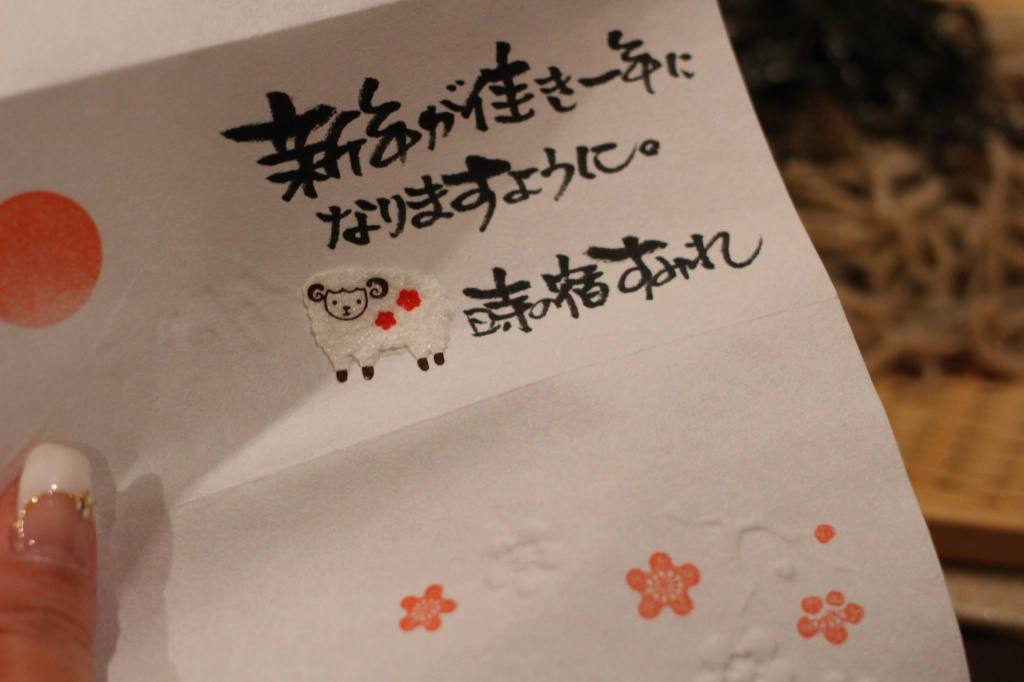 新年が佳き一年に
なりますように。
時の宿すみれ